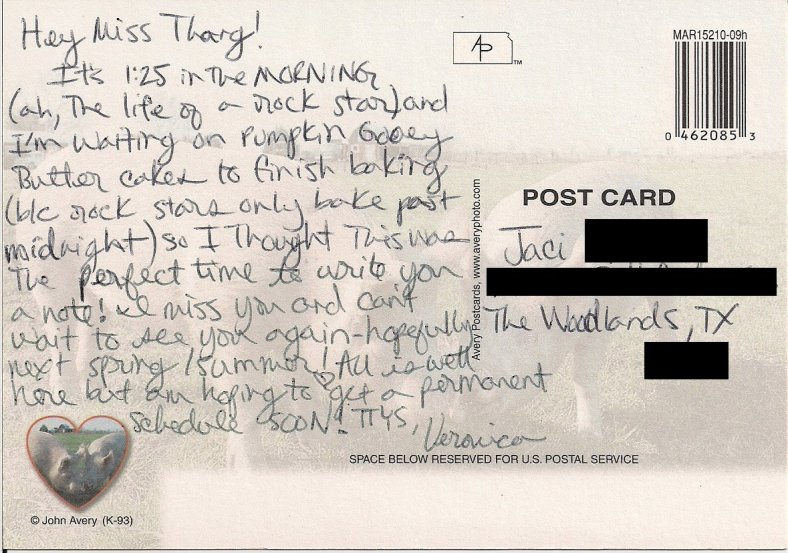 Hey Miss Thang!
It's 1:25 in the MORNING
(ah, the life of a rock star) and
I'm waiting on Pumpkin Gooey
Butter cakes to finish baking
(b/c rock stars only bake past
midnight) so I thought this was
the perfect time to write you
a note! I miss you and can't
wait to see you again-hopefully
next spring/summer! All is well
here but am hoping to get a permanent
schedule SOON! TTYS,
Veronica
© John Avery (K-93)
AP
TM
MAR15210-09h
0 462085 3
POST CARD
Avery Postcards, www.averyphoto.com
Jaci
The Woodlands, TX
SPACE BELOW RESERVED FOR U.S. POSTAL SERVICE